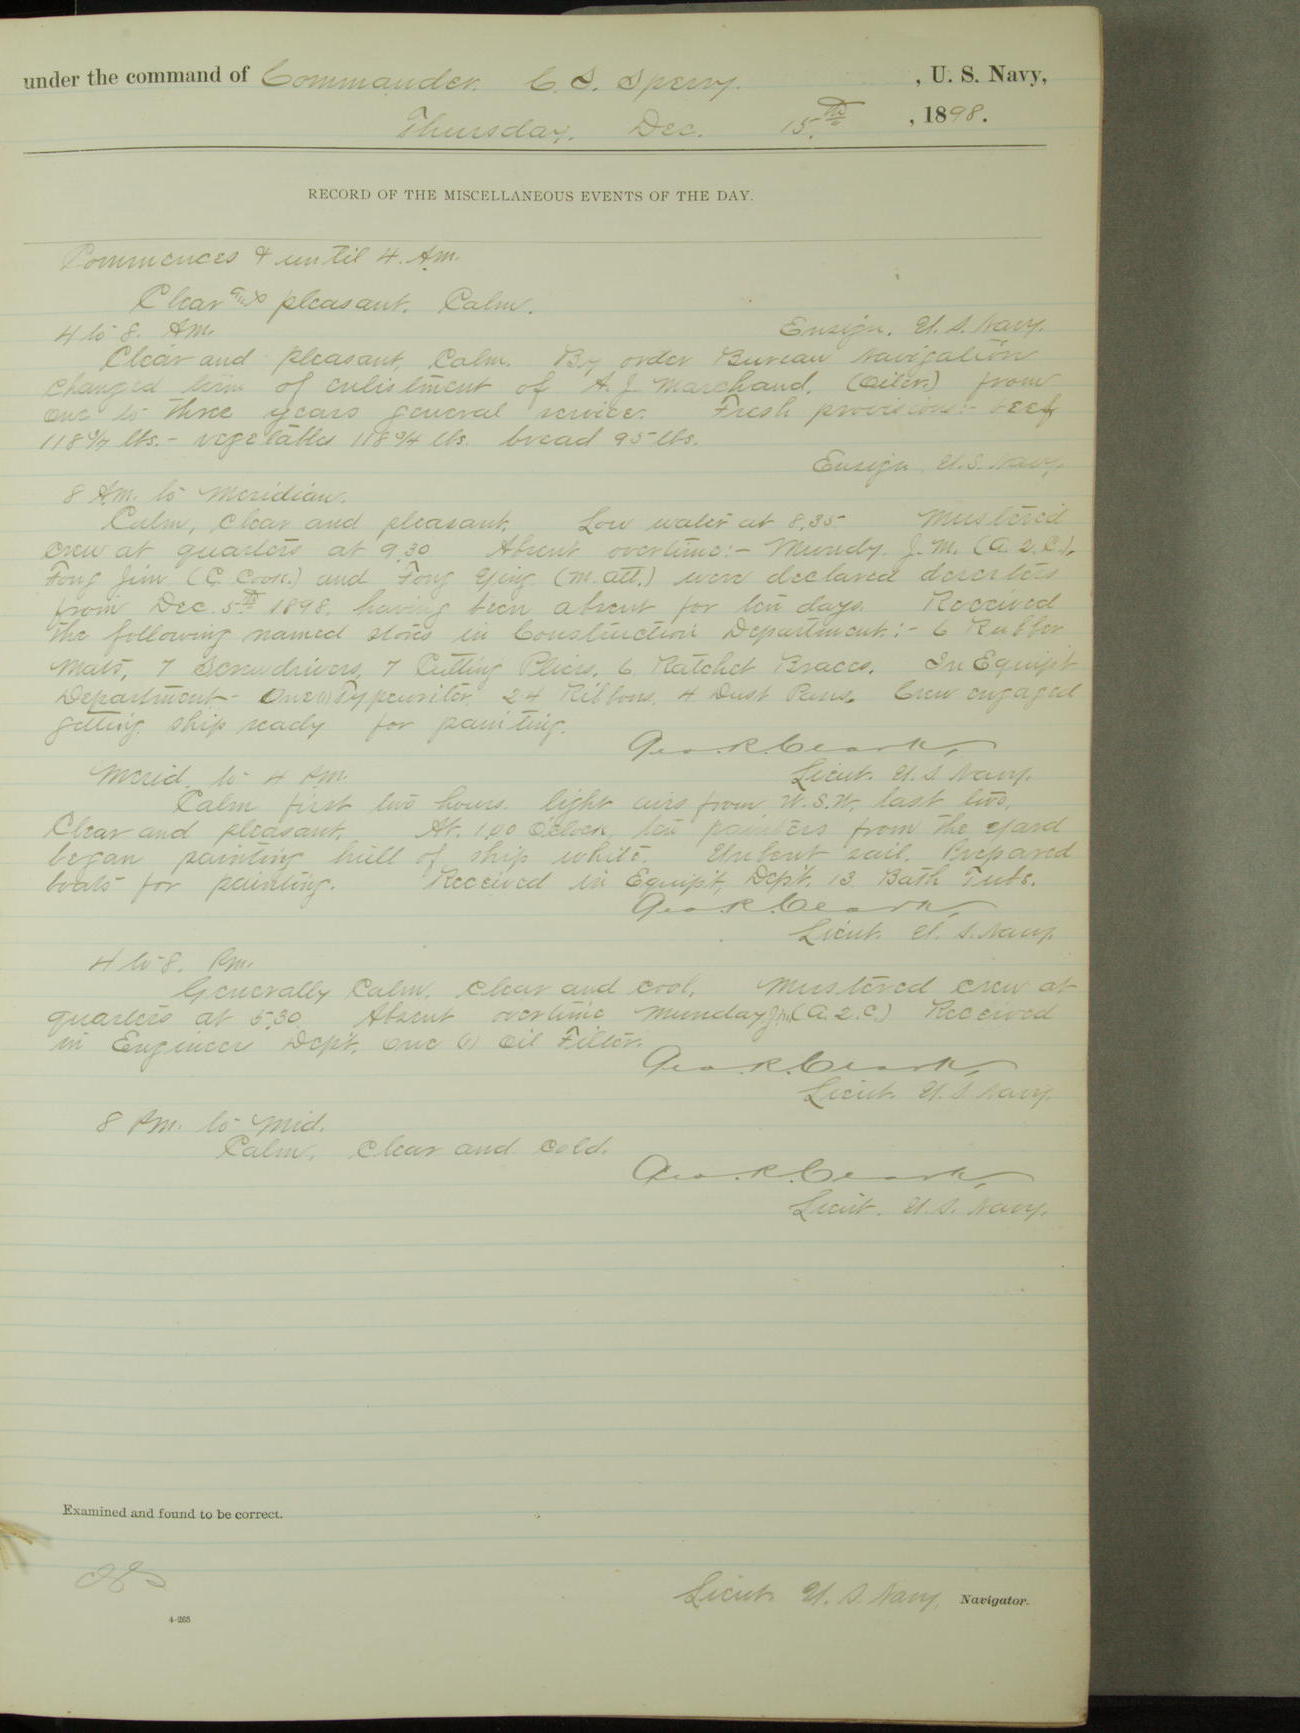 under the command of Commander. C. S. Sperry. , U. S. Navy,
Thursday. Dec. 15.th , 1898.
RECORD OF THE MISCELLANEOUS EVENTS OF THE DAY.
Commences & until 4. Am.
Clear and pleasant. Calm.
Ensign. U. S. Navy.
4 to 8. Am.
Clear and pleasant, Calm. By order Bureau Navigation
changed term of enlistment of A. J. Marchand. (Oiler.) from
one to three years general service. Fresh provisions:- beef
118 3/4 lbs.- vegetables 118 3/4 lbs. bread 95 lbs.
Ensign U.S. Navy.
8 Am. to Meridian.
Calm, clear and pleasant. Low water at 8.35 Mustered
crew at quarters at 9.30 Absent overtime:- Munday. J. M. (A. 2. C.),
Fong Jim. (C. Cook.) and Fong Ging (M. Att.) were declared deserters
from Dec. 5th 1898. having been absent for ten days. Received
the following named stores in Construction Department:- 6 Rubber
Mats, 7 Screwdrivers, 7 Cutting Pliers. 6 Ratchet Braces. In Equip't
Department- One (1) Typewriter. 24 Ribbons. 4 Dust Pans. Crew engaged
getting ship ready for painting.
Geo. R. Clark,
Lieut. U. S Navy.
Merid. to 4 Pm.
Calm first two hours. light airs from W. S. W. last two.
Clear and pleasant. At. 1.00 O'clock, ten painters from the yard
began painting hull of ship white. Unbent sail. Prepared
boats for painting. Received in Equip't, Dept. 13 Bath Tubs.
Geo. R. Clark,
Lieut. U. S. Navy.
4 to 8. Pm.
Generally Calm. Clear and cool. Mustered crew at
quarters at 5.30 Absent overtime Munday J.M. (A. 2. C.) Received
in Engineer Dept. One (1) Oil Filter.
Geo. R. Clark,
Lieut. U. S. Navy.
8 Pm. to Mid.
Calm. Clear and cold.
Geo. R. Clark,
Lieut. U. S. Navy.
Examined and found to be correct.
Lieut. U. S. Navy, Navigator.
4-265